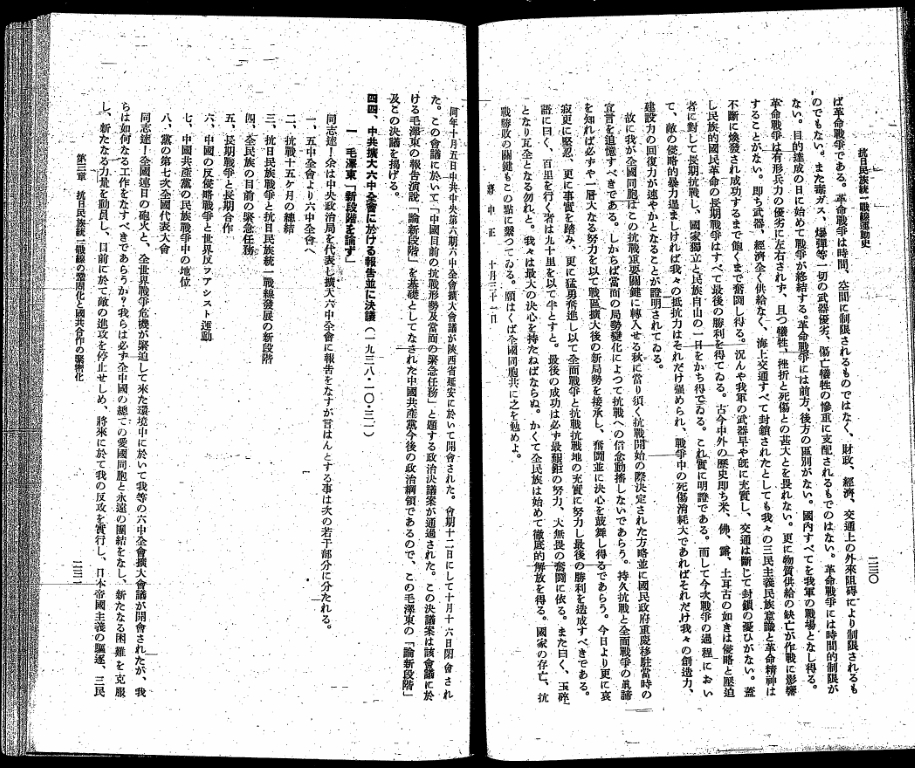 抗日民族統一戰線運動史
二三〇
ば革命戰爭である。革命戰爭は時間、空間に制限されるものではなく、財政、經濟、交通上の外來阻碍により制限されるも
のでもない。また毒ガス、爆彈等一切の武器優劣、傷亡犧牲の慘重に支配されるものではない。革命戰爭には時間的制限が
ない。目的達成の日に始めて戰爭が終結する。革命戰爭には前方、後方の區別がない。國內すべてを我軍の戰場となし得る。
革命戰爭は有形兵力の優劣に左右されず、且つ犧牲、挫折と死傷との甚大とを畏れない。更に物質供給の缺亡が作戰に影響
することがない。卽ち武器、經濟全く供給なく、海上交通すべて封鎖されたとしても我々の三民主義民族意識と革命精神は
不斷に煥發され成功するまで飽くまで奮鬪し得る。況んや我軍の武器早や旣に充實し、交通は斷じて封鎖の憂ひがない。蓋
し民族的國民革命の長期戰爭はすべて最後の勝利を得てゐる。古今中外の歷史卽ち米、佛、露、土耳古の如きは侵略と壓迫
者に對して長期抗戰し、國家獨立と民族自由の一日をかち得てゐる。これ實に明證である。而して今次戰爭の過程におい
て、敵の侵略的暴力逞ましければ我々の抵抗力はそれだけ强められ、戰爭中の死傷消耗大であればそれだけ我々の創造力、
建設力の回復力が速やかとなることが證明されてゐる。
故に我が全國同胞はこの抗戰重要關鍵に轉入せる秋に當り須く抗戰開始の際決定された方略並に國民政府重慶移駐當時の
宣言を追憶すべきである。しからば當面の局勢變化によつて抗戰への信念動搖しないであらう。持久抗戰と全面戰爭の眞諦
を知れば必ずや一層大なる努力を以て戰區擴大後の新局勢を接承し、奮鬪並に決心を鼓舞し得るであらう。今日より更に哀
寂更に堅忍、更に事實を踏み、更に猛勇奮進し以て全面戰爭と抗戰抗戰地の充實に努力し最後の勝利を達成すべきである。
語に曰く、百里を行く者は九十里を以て半とすと。最後の成功は必ず最艱鉅の努力、大無畏の奮鬪に依る。また曰く、玉碎
となり瓦全となる勿れと。我々は最大の決心を持たねばならぬ。かくて全民族は始めて徹底的解放を得る。國家の存亡、抗
戰勝敗の關鍵もこの點に繫つてゐる。願はくば全國同胞共に之を勉めよ。
蔣中正 十月三十一日
同年十月五日中共中央第六期六中全會擴大會議が陝西省延安に於いて開會された。會期十二日にして十月十六日閉會され
た。この會議に於いて「中國目前の抗戰形勢及當面の緊急任務」と題する政治決議案が通過された。この決議案は該會議に於
ける毛澤東の報告演說「論新段階」を基礎としてなされた中國共產黨今後の政治綱領であるので、この毛澤東の「論新段階」
及この決議を揭げる。
四四、中共擴大六中全會に於ける報告並に決議（一九三八・一〇・二一）
一 毛澤東「新段階を論ず」
同志達！余は中央政治局を代表し擴大六中全會に報告をなすが言はんとする事は次の若干部分に分たれる。
一、五中全會より六中全會へ
二、抗戰十五ケ月の總結
三、抗日民族戰爭と抗日民族統一戰線發展の新段階
四、全民族の目前の緊急任務
五、長期戰爭と長期合作
六、中國の反侵略戰爭と世界反フアシスト運動
七、中國共產黨の民族戰爭中の地位
八、黨の第七次全國代表大會
同志達！全國連日の砲火と、全世界戰爭危機が緊迫して來た環境中に於いて我等の六中全會擴大會議が開會されたが、我
らは如何なる工作をなすべきであらうか？我らは必ず全中國の總ての愛國同胞と永遠の團結をなし、新たなる困難を克服
し、新たなる力量を動員し、目前に於て敵の進攻を停止せしめ、將來に於て我の反攻を實行し、日本帝國主義の驅逐、三民
第三章 抗日民族統一戰線の鞏固化と國共合作の緊密化
二三一